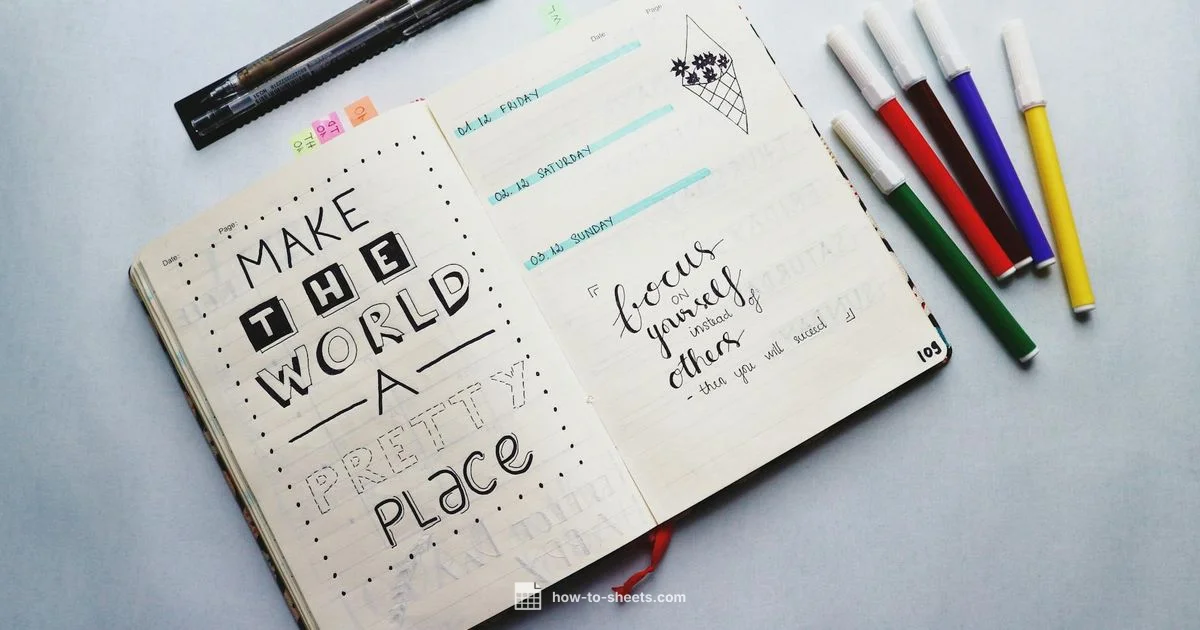 Date:
Page:
MAKE
THE
WORLD
A
PRETTY
PLACE
Date:
Page:
01.12 FRIDAY
02.12 SATURDAY
03.12 SUNDAY
focus
ON
yourself
instead of
others
- then you will succeed
109
how-to-sheets.com